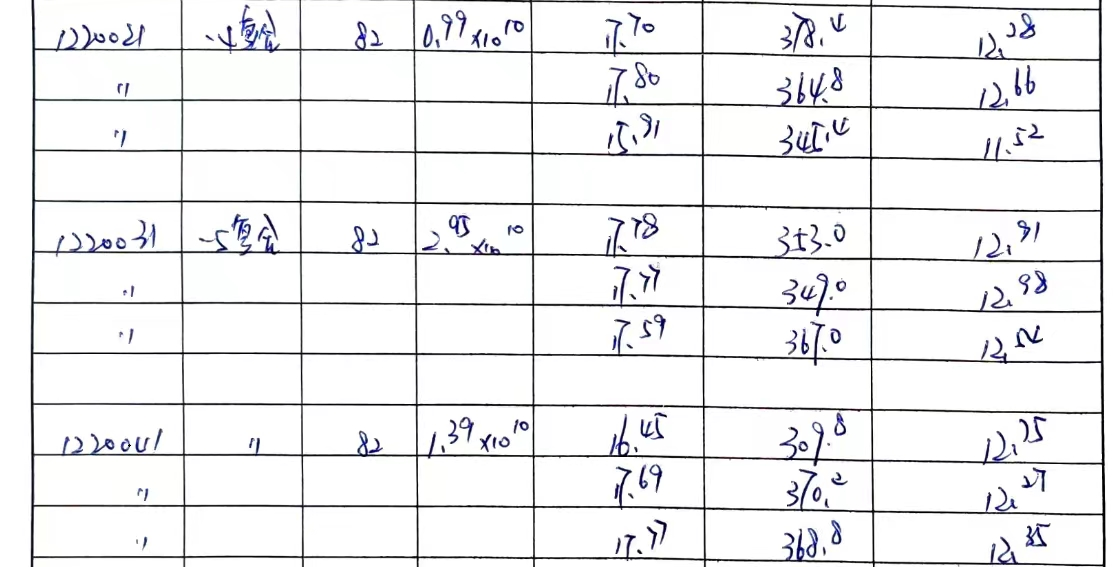 1220021 -4复合 82 0.99×10^10 17.70 378.4 12.28
〃 17.80 364.8 12.66
〃 15.91 345.4 11.52
1220031 -5复合 82 2.95×10^10 17.78 353.0 12.91
〃 17.77 349.0 12.98
〃 17.59 367.0 12.54
1220041 〃 82 1.39×10^10 16.45 309.8 12.75
〃 17.69 370.2 12.27
〃 17.77 368.8 12.35